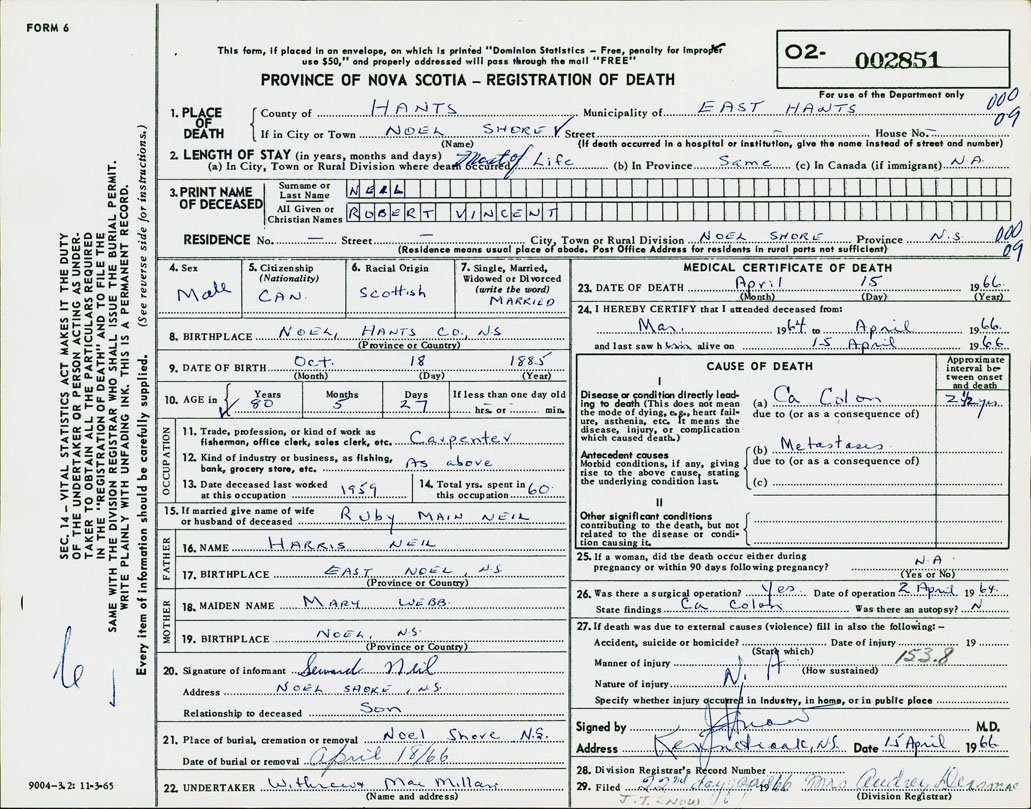 FORM 6
This form, if placed in an envelope, on which is printed "Dominion Statistics – Free, penalty for improper
use $50," and properly addressed will pass through the mail "FREE"
PROVINCE OF NOVA SCOTIA – REGISTRATION OF DEATH
O2- 002851
For use of the Department only
000
09
1. PLACE OF DEATH
County of HANTS Municipality of EAST HANTS
If in City or Town NOEL SHORE Street – House No. –
(Name) (If death occurred in a hospital or institution, give the name instead of street and number)
2. LENGTH OF STAY (in years, months and days)
(a) In City, Town or Rural Division where death occurred Most of Life (b) In Province Same (c) In Canada (if immigrant) N.A.
3. PRINT NAME OF DECEASED
Surname or Last Name NEIL
All Given or Christian Names ROBERT VINCENT
RESIDENCE No. – Street – City, Town or Rural Division NOEL SHORE Province N.S.
(Residence means usual place of abode. Post Office Address for residents in rural parts not sufficient)
000
09
4. Sex
Male
5. Citizenship
(Nationality)
CAN.
6. Racial Origin
Scottish
7. Single, Married,
Widowed or Divorced
(write the word)
MARRIED
8. BIRTHPLACE NOEL, HANTS CO., N.S
(Province or Country)
9. DATE OF BIRTH Oct. 18 1885
(Month) (Day) (Year)
10. AGE in
Years Months Days If less than one day old
80 5 27 hrs. or min.
OCCUPATION
11. Trade, profession, or kind of work as
fisherman, office clerk, sales clerk, etc. Carpenter
12. Kind of industry or business, as fishing,
bank, grocery store, etc. As above
13. Date deceased last worked
at this occupation 1959
14. Total yrs. spent in
this occupation 60
15. If married give name of wife
or husband of deceased Ruby MAIN NEIL
FATHER
16. NAME HARRIS NEIL
17. BIRTHPLACE EAST NOEL, N.S.
(Province or Country)
MOTHER
18. MAIDEN NAME MARY WEBB
19. BIRTHPLACE NOEL, N.S.
(Province or Country)
20. Signature of informant Neil
Address NOEL SHORE, N.S.
Relationship to deceased Son
21. Place of burial, cremation or removal Noel Shore N.S.
Date of burial or removal April 18/66
22. UNDERTAKER Withrow MacMillan
(Name and address)
MEDICAL CERTIFICATE OF DEATH
23. DATE OF DEATH April 15 1966
(Month) (Day) (Year)
24. I HEREBY CERTIFY that I attended deceased from:
Mar. 1964 to April 1966
and last saw him alive on 15 April 1966
CAUSE OF DEATH
Approximate
interval be-
tween onset
and death
I
Disease or condition directly lead-
ing to death (This does not mean
the mode of dying, e.g., heart fail-
ure, asthenia, etc. It means the
disease, injury, or complication
which caused death.)
(a) Ca Colon 2½ yrs.
due to (or as a consequence of)
Antecedent causes
Morbid conditions, if any, giving
rise to the above cause, stating
the underlying condition last.
(b) Metastases
due to (or as a consequence of)
(c)
II
Other significant conditions
contributing to the death, but not
related to the disease or condi-
tion causing it.
25. If a woman, did the death occur either during
pregnancy or within 90 days following pregnancy? N.A
(Yes or No)
26. Was there a surgical operation? Yes Date of operation 2 April 1964
State findings Ca Colon Was there an autopsy? N
27. If death was due to external causes (violence) fill in also the following:–
Accident, suicide or homicide? Date of injury 19
(State which)
153.8
Manner of injury N. A
(How sustained)
Nature of injury
Specify whether injury occurred in industry, in home, or in public place
Signed by M.D.
Address Kennetcook, N.S. Date 15 April 1966
28. Division Registrar's Record Number
29. Filed 22nd day April 1966 Mrs Audrey
(Division Registrar)
SEC. 14 – VITAL STATISTICS ACT MAKES IT THE DUTY
OF THE UNDERTAKER OR PERSON ACTING AS UNDER-
TAKER TO OBTAIN ALL THE PARTICULARS REQUIRED
IN THE "REGISTRATION OF DEATH" AND TO FILE THE
SAME WITH THE DIVISION REGISTRAR WHO SHALL ISSUE THE BURIAL PERMIT.
WRITE PLAINLY WITH UNFADING INK. THIS IS A PERMANENT RECORD.
Every item of information should be carefully supplied. (See reverse side for instructions.)
9004-3.2: 11-3-65